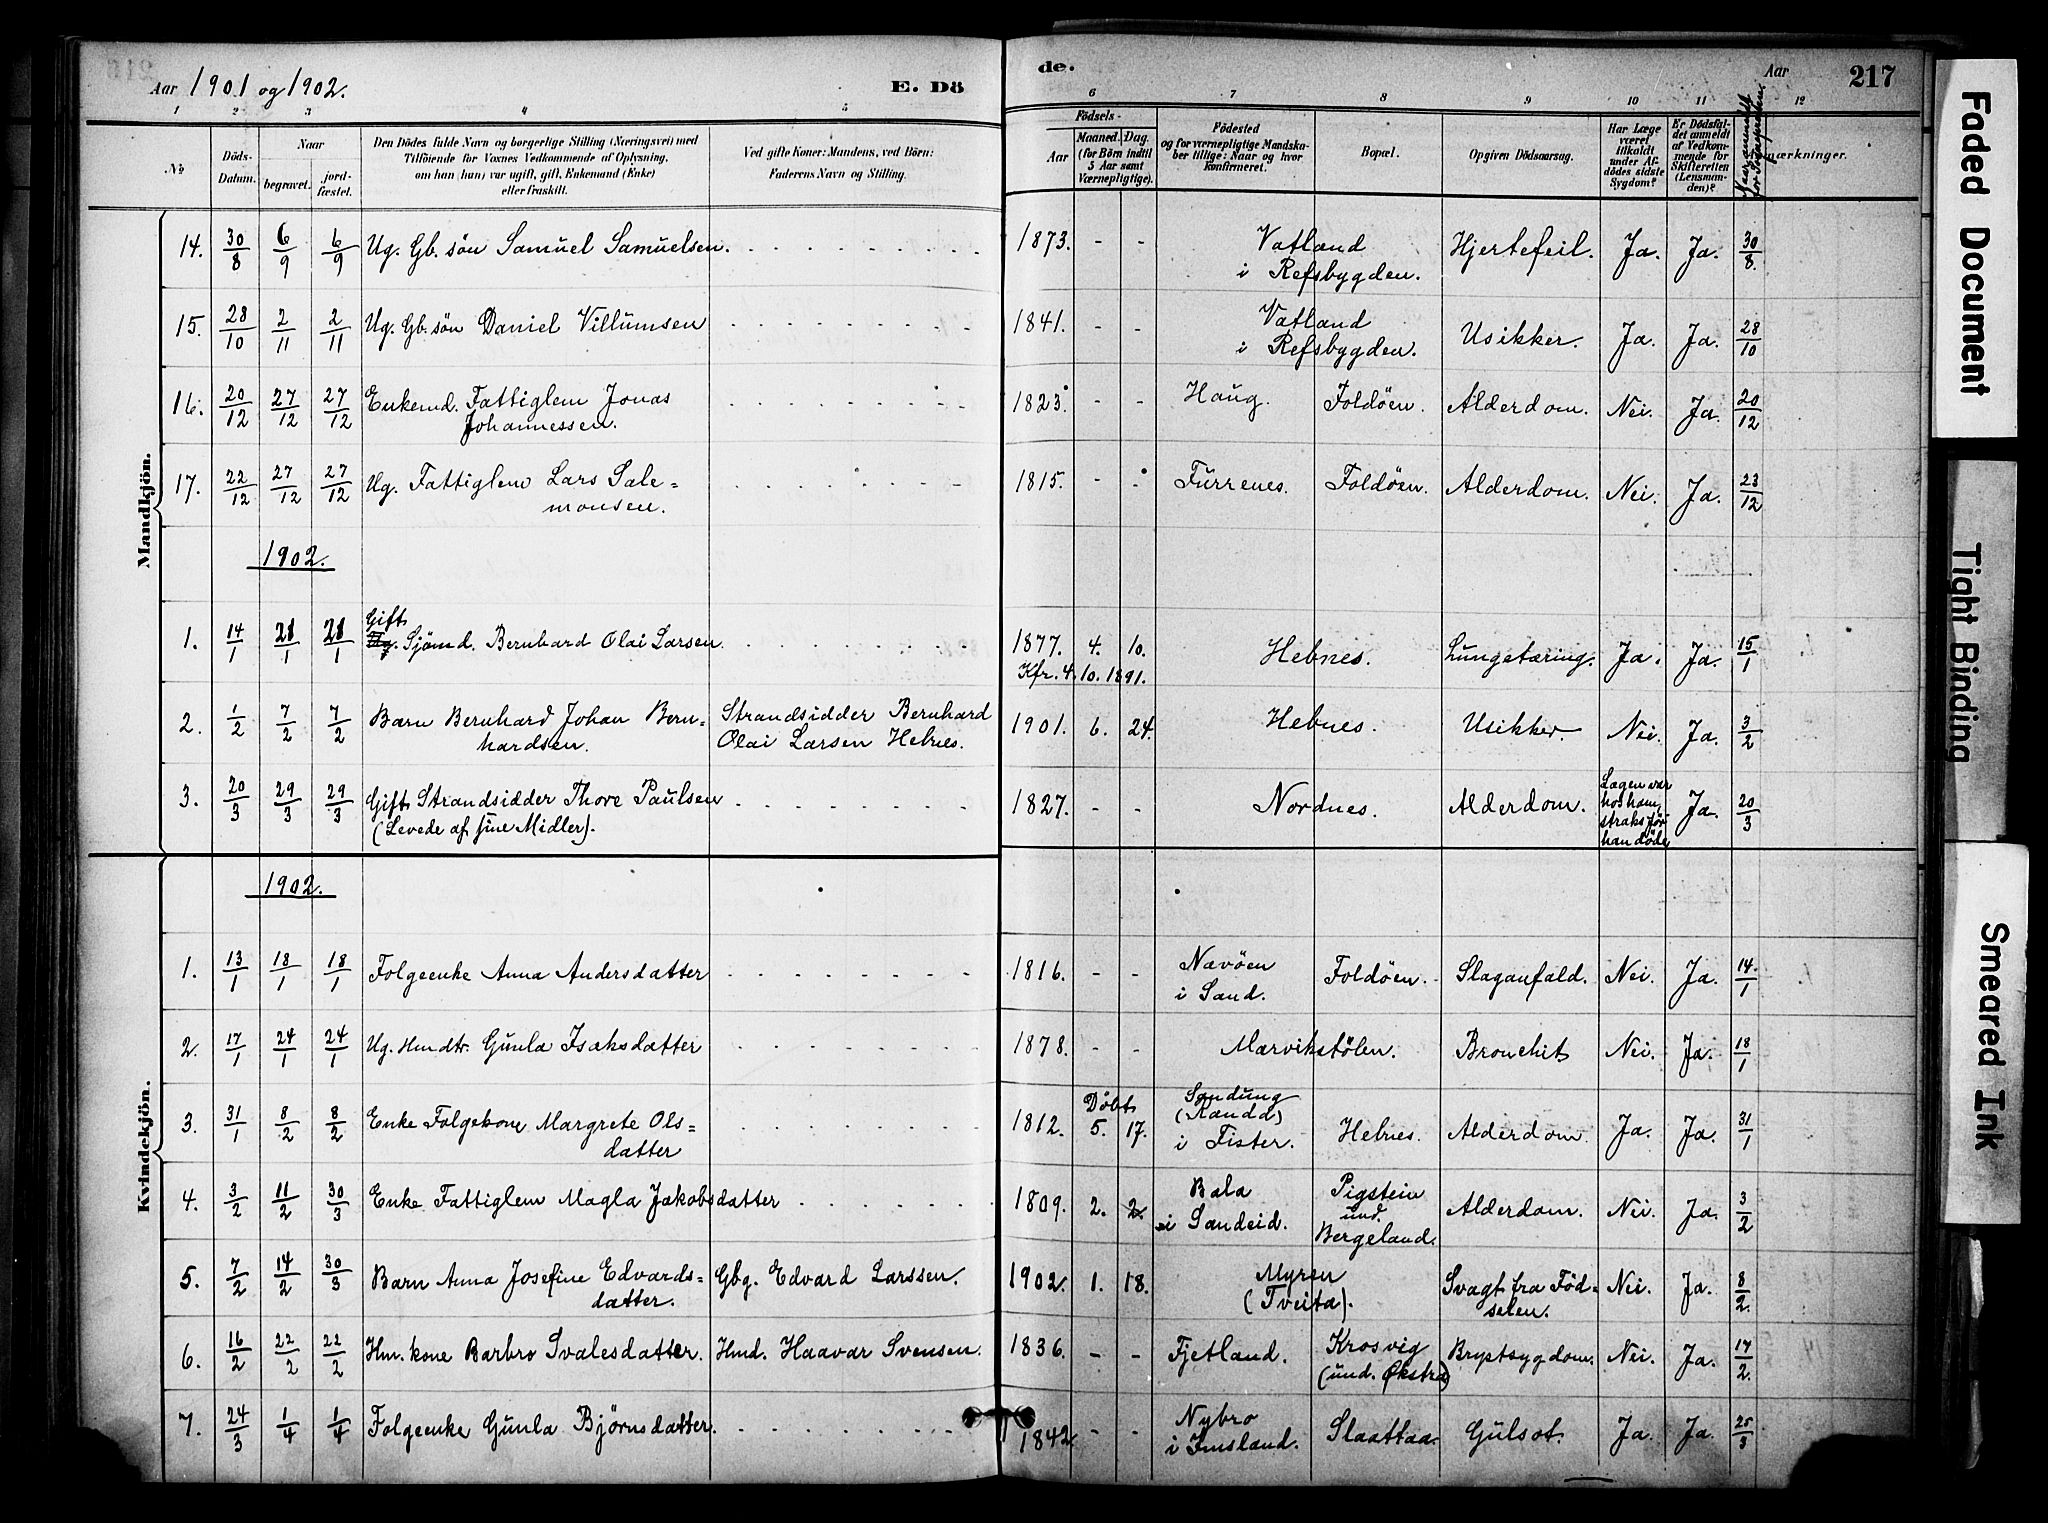 Aar 1901 og 1902.
E. Dö
de.
Aar
217
1 2 3 4 5 6 7 8 9 10 11 12
No
Döds-Datum.
Naar
begravet.
jord-fæstet.
Den Dödes fulde Navn og borgerlige Stilling (Næringsvei) med
Tilföiende for Voxnes Vedkommende af Oplysning,
om han (hun) var ugift, gift, Enkemand (Enke)
eller fraskilt.
Ved gifte Koner: Mandens, ved Börn:
Faderens Navn og Stilling.
Födsels-
Aar
Maaned. Dag.
(for Börn indtil
5 Aar samt
Værnepligtige).
Födested
og for værnepligtige Mandska-
ber tillige: Naar og hvor
konfirmeret.
Bopæl.
Opgiven Dödsaarsag.
Har Læge
været
tilkaldt
under Af-
dödes sidste
Sygdom?
Er Dödsfal-
det anmeldt
af Vedkom-
mende for
Skifteretten
(Lensman-
den)?
Naar anmeldt for Sognepresten.
mærkninger.
Mandkjön.
14. 30/8 6/9 6/9 Ug. Gb. sön Samuel Samuelsen. 1873. - - Vatland i Refsbygden. Hjertefeil. Ja. Ja. 30/8.
15. 28/10 2/11 2/11 Ug. Gb. sön Daniel Villumsen 1841. - - Vatland i Refsbygden. Usikker. Ja. Ja. 28/10
16. 20/12 27/12 27/12 Enkemd. Fattiglem Jonas Johannessen. 1823. - - Haug. Foldöen. Alderdom. Nei. Ja. 20/12
17. 22/12 27/12 27/12 Ug. Fattiglem Lars Sale=monsen. 1815. - - Furrenes. Foldöen. Alderdom. Nei. Ja. 23/12
1902.
1. 14/1 21/1 21/1 Gift Ug. Sjømd. Bernhard Olai Larsen. 1877. 4. 10. Hebnes. Lungetæring. Ja. Ja. 15/1
Kfr. 4. 10. 1891.
2. 1/2 7/2 7/2 Barn Bernhard Johan Bern=hardsen. Strandsidder Bernhard Olai Larsen Hebnes. 1901. 6. 24. Hebnes. Usikker. Nei. Ja. 3/2
3. 20/3 29/3 29/3 Gift Strandsidder Thore Paulsen (Levede af sine Midler). 1827. - - Nordnes. Alderdom. Lægen var hos ham straks før han døde Ja. 20/3
Kvindekjön.
1902.
1. 13/1 18/1 18/1 Folgeenke Anna Andersdatter 1816. - - Nævöen i Sand. Foldöen. Slaganfald. Nei. Ja. 14/1
2. 17/1 24/1 24/1 Ug. Hmdtr. Gunla Isaksdatter 1878. - - Marvikstölen. Bronchit Nei. Ja. 18/1
3. 31/1 8/2 8/2 Enke Folgekone Margrete Ols=datter 1812. Döbt 5. 17. (Randa) i Fister. Hebnes. Alderdom. Ja. Ja. 31/1
4. 3/2 11/2 30/3 Enke Fattiglem Magla Jakobsdatter 1809. 2. 2. Bala i Sandeid. Pigstein und. Bergeland. Alderdom. Nei. Ja. 3/2
5. 7/2 14/2 30/3 Barn Anna Josefine Edvards=datter. Gbg. Edvard Larssen. 1902. 1. 18. Myren (Tveita). Svagt fra Föd=selen. Nei. Ja. 8/2.
6. 16/2 22/2 22/2 Hm. kone Barbro Svalesdatter. Hmd. Haavar Svensen. 1836. - - Fjetland. Krosvig (und. Økstra) Brystsygdom. Nei. Ja. 17/2.
7. 24/3 1/4 1/4 Folgeenke Gunla Bjørnsdatter. 1842 - - Nybro i Imsland. Slaattaa. Gulsot. Ja. Ja. 25/3
Faded Document
Tight Binding
Smeared Ink